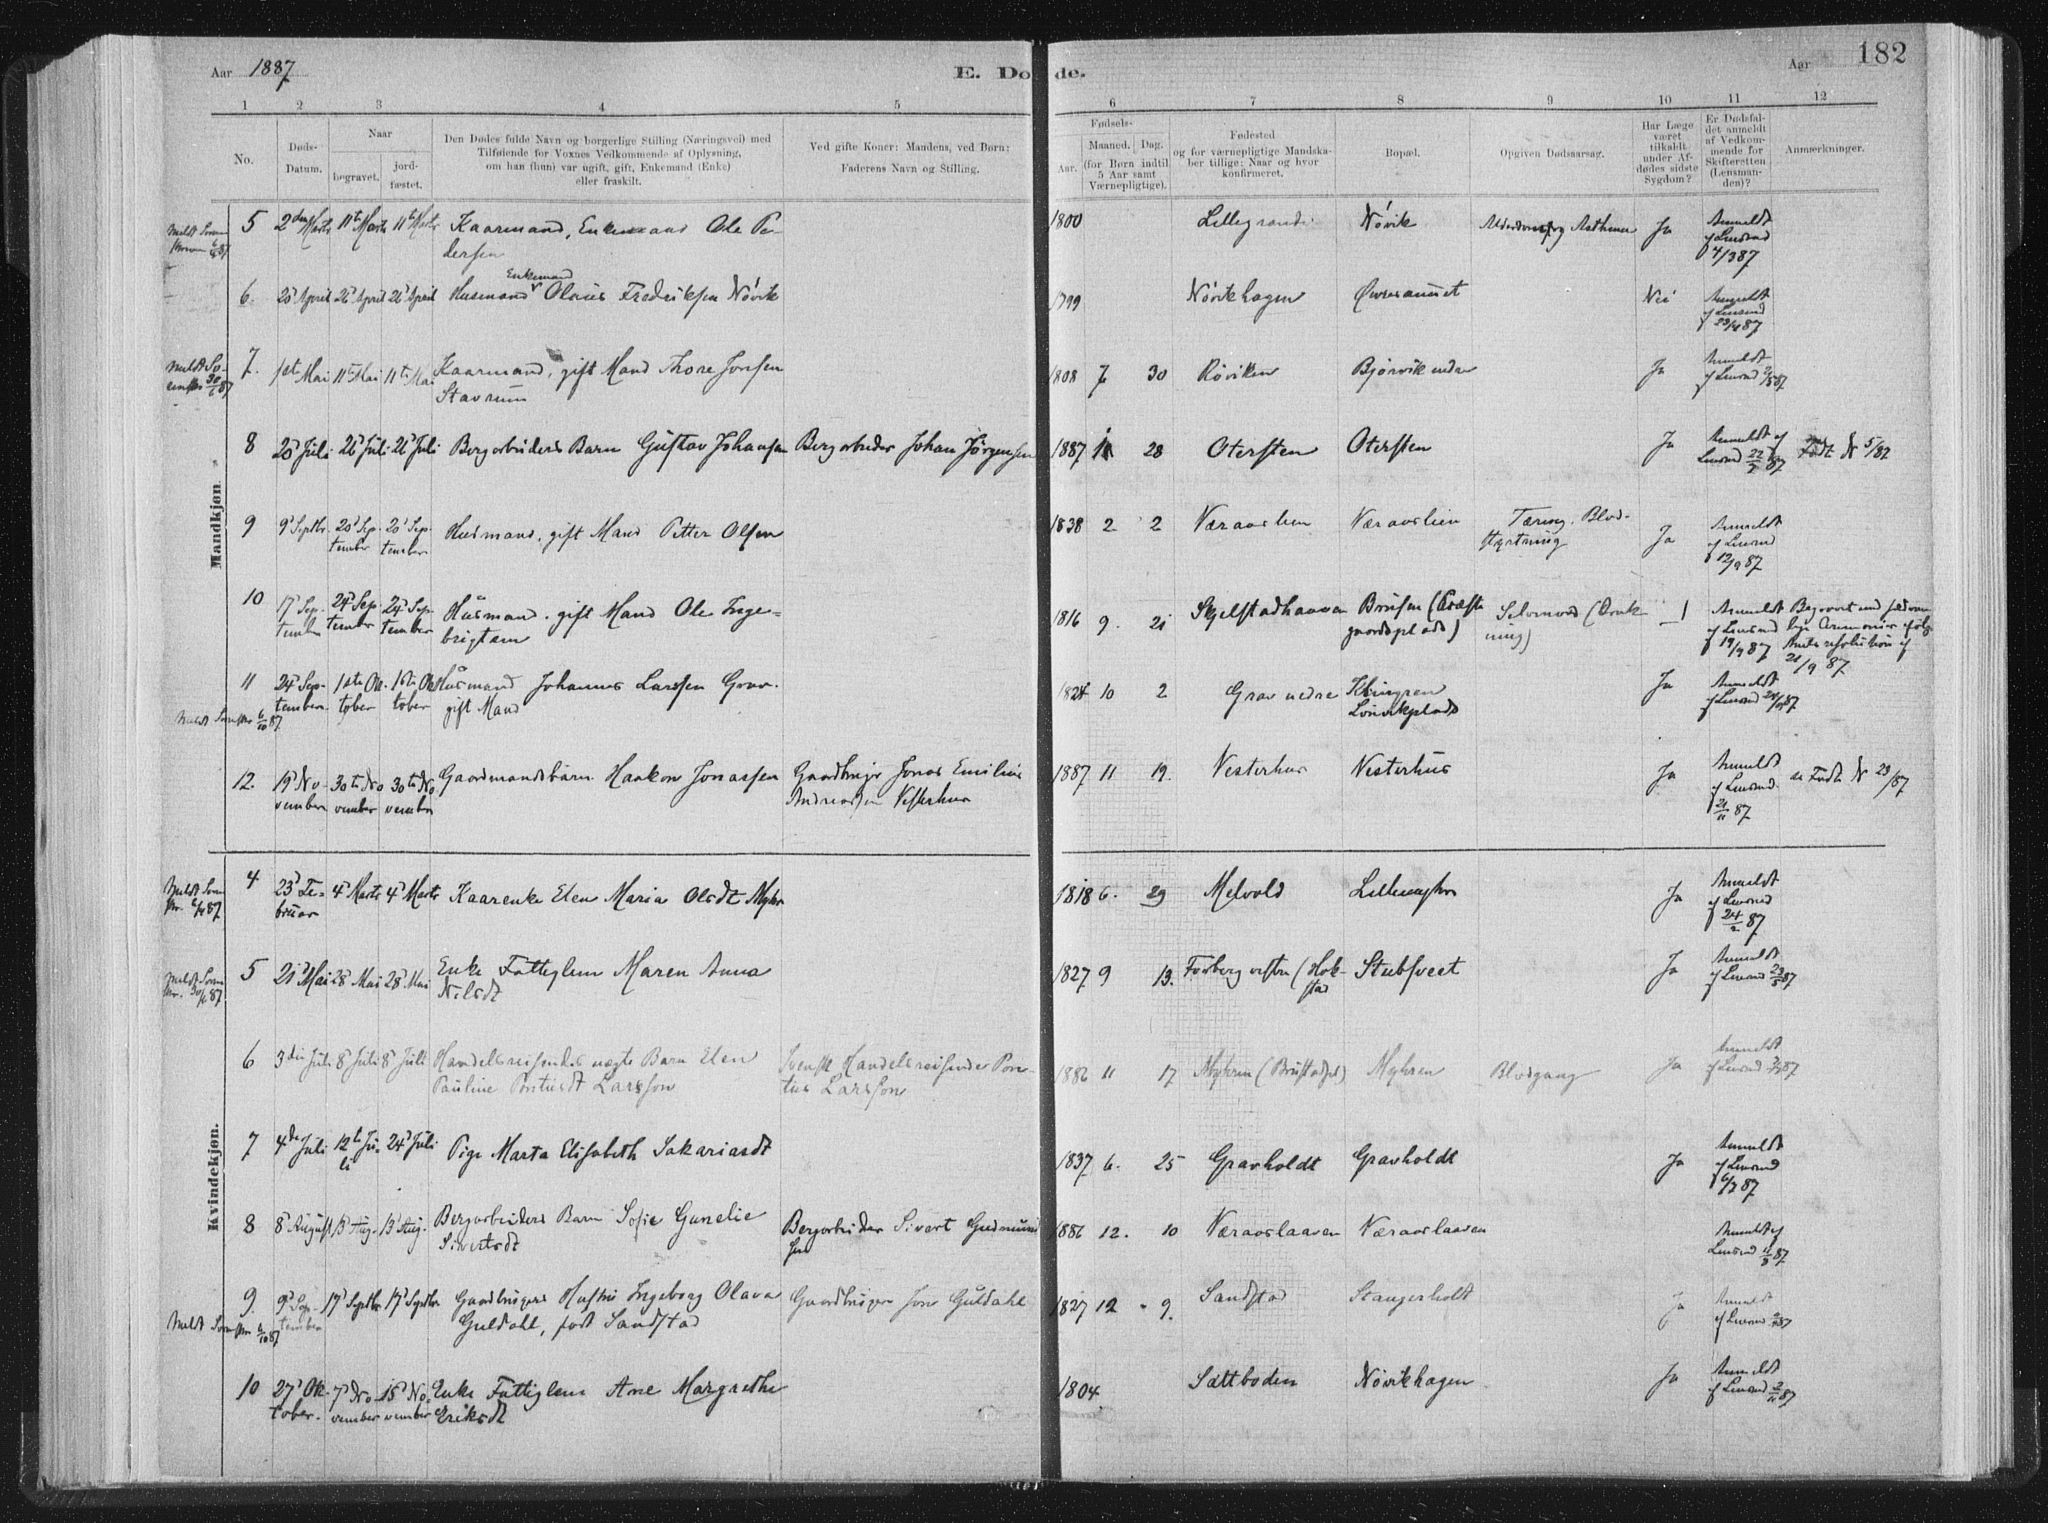 Aar 1887
E. Do de.
Aar 182
1 2 3 4 5 6 7 8 9 10 11 12
No.
Døds-
Datum.
Naar
begravet.
jord-
fæstet.
Den Dødes fulde Navn og borgerlige Stilling (Næringsvei) med
Tilføiende for Voxnes Vedkommende af Oplysning,
om han (hun) var ugift, gift, Enkemand (Enke)
eller fraskilt.
Ved gifte Koner: Mandens, ved Børn:
Faderens Navn og Stilling.
Fødsels-
Aar.
Maaned. Dag.
(for Børn indtil
5 Aar samt
Værnepligtige).
Fødested
og for værnepligtige Mandska-
ber tillige: Naar og hvor
konfirmeret.
Bopæl.
Opgiven Dødsaarsag.
Har Læge
været
tilkaldt
under Af-
dødes sidste
Sygdom?
Er Dødsfal-
det anmeldt
af Vedkom-
mende for
Skifteretten
(Lensman-
den)?
Anmærkninger.
Mandkjøn
5 2den Marts 11te Marts 11te Marts Kaarmand, Enkemand Ole Pe-
dersen
1800 Nøvik Ja Anmeldt
af Lensmd
4/3 87
6. 26 April 26 April Husmand Enkemand Olaus Fredriksen Nøvik
1799 Nøvikhagen Nei Anmeldt
af Lensmd
23/4 87
7. 1ste Mai 11te Mai 11te Mai Kaarmand, gift Mand Thore Jonsen
Stavrum
1808 7 30 Røviken Bjørvik nedre Ja Anmeldt
af Lensmd 2/5 87
8 20 Juli 26 Juli 26 Juli Bergarbeiders Barn Gustav Johansen Bergarbeider Johan Jørgensen
1887 28 Otersten Otersten Ja Anmeldt af
Lensmd 22/7 87 Fødte N 5/87
9 9 Septbr. 20 Sep-
tember 20 Sep-
tember Husmand, gift Mand Petter Olsen
1838 2 2 Væraaslien Væraaslien Tæring. Blod-
styrtning Ja Anmeldt
af Lensmd
12/9 87
10 17 Sep-
tember 24 Sep-
tember 24 Sep-
tember Husmand, gift Mand Ole Inge-
brigtsen
1816 9. 21 Skjelstadhaugen Selvmord (Druk-
ning) Anmeldt
af Lensmd
19/9 87
21/9 87
11 24 Sep-
tember 1ste Ok-
tober 1ste Ok-
tober Husmand Johannes Larsen Grav.
gift Mand
1824 10 2 Grav nedre Klingren
Lønvikplads Ja Anmeldt
af Lensmd
12. 19 No-
vember 30te No-
vember 30te No-
vember Gaardmandsbarn Haakon Jonassen Gaardbruger Jonas Emilius
Andreassen Vesterhus
1887 11 19. Vesterhus Vesterhus Ja Anmeldt
af Lensmd.
21/11 87 se Fødte N 23/87
Kvindekjøn.
4 23 Fe-
bruar 4 Marts 4 Marts Kaarenke Elen Maria Olsdt Myhr
1818 6. 29 Melvold Lillemyhr Ja Anmeldt
af Lensmd
24/2 87
5 21 Mai 28 Mai 28 Mai Enke Fattiglem Maren Anna
Nilsdt
1827 9 13. Forberg vestre (Hok-
stad Stubsveet Ja Anmeldt
af Lensmd 23/5 87
6 3die Juli 8 Juli 8 Juli Handelsreisendes ægte Barn Elen
Pauline Pontusdt Larsson Svensk Handelsreisende Pon-
tus Larsson
1886 11 17 Myhren (Brustadpl) Myhren Blodgang Ja Anmeldt
af Lensmd
7 4de Juli 12te Ju-
li 24 Juli Pige Marta Elisabeth Sakariasdt
1837 6. 25 Gravholdt Gravholdt Ja Anmeldt
af Lensmd
6/7 87
8 8 August 13 Aug. 13 Aug. Bergarbeiders Barn Sofie Gunelie
Sivertsdt Bergarbeider Sivert Gudmund
sen
1886 12. 10 Væraaslaaven Væraaslaaven Anmeldt af
Lensmd
9. 9 Sep-
tember 17 Septbr 17 Septbr Gaardbrugers Hustru Ingeborg Olava
Guldahl, født Sandstad Gaardbruger Jon Guldahl
1827 12 9. Sandstad Stangerholt Ja Anmeldt
af Lensmd
10 27 Ok-
tober. 7 No-
vember 15 No-
vember Enke Fattiglem Ane Margrethe
Eriksdt
1804. Sættboden Nøvikhagen Ja Anmeldt
af Lensmd 2/11 87